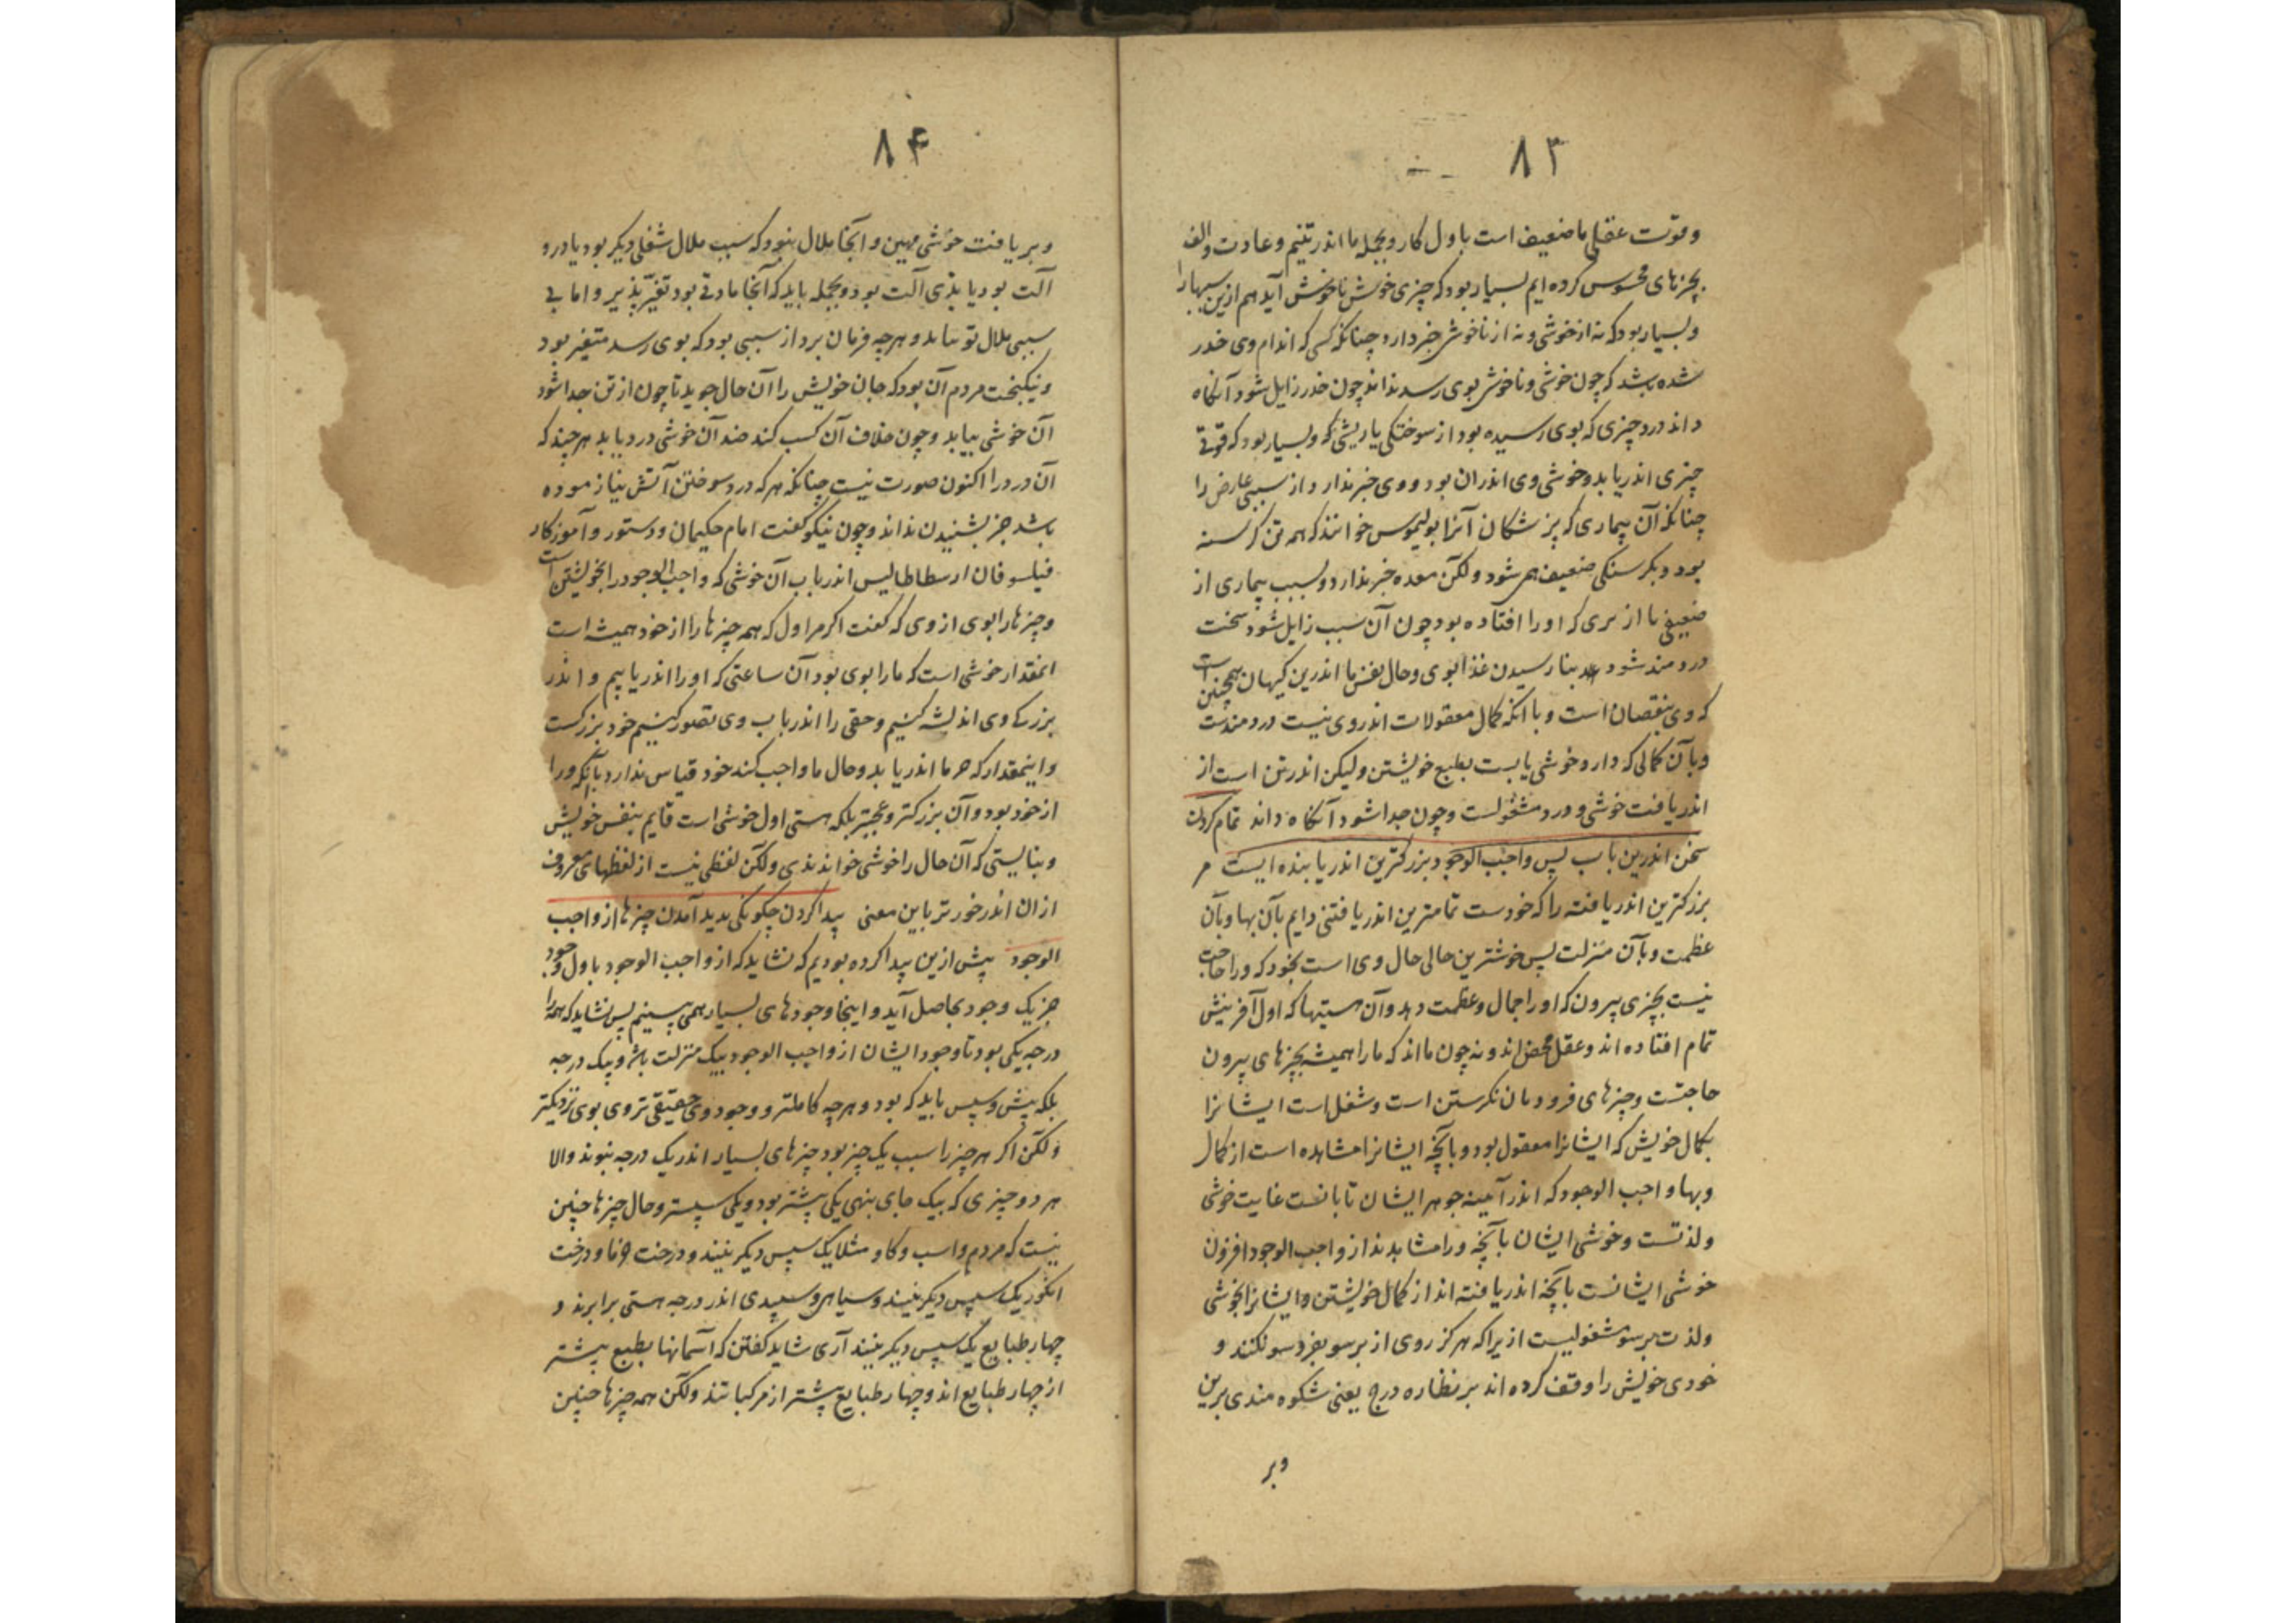 ۸۳
وقوت عقلی ما ضعیف است باول کار وبجمله ما اندر تنیم وعادت والف
بچیزهای محسوس کرده ایم بسیار بود که چیزی خوش ناخوش آید هم ازین سببها را
وبسیار بود که نه از خوشی ونه از ناخوشی خبر دارد چنانکه کسی که اندام وی خدر
شده باشد که چون خوشی وناخوشی بوی رسد نداند چون خدر زایل شود آنکاه
داند درد چیزی که بوی رسیده بود از سوختکی یا ریشی که وبسیار بود که قوتی
چیزی اندر یابد وخوشی وی اندران بود ووی خبر ندارد از سببی عارض را
چنانکه آن بیماری که پزشکان آنرا بولیموس خوانند که همه تن کرسنه
بود وبکرسنکی ضعیف همی شود ولکن معده خبر ندارد وبسبب بیماری از
ضعیفی یا از تری که او را افتاده بود چون آن سبب زایل شود سخت
دردمند شود بنا رسیدن غذا بوی وحال نفس ما اندرین کیهان همچنین است
که وی بنقصان است وبا انکه کمال معقولات اندر وی نیست دردمندست
وبآن کمالی که دارد خوشی یابست بطبع خویشتن ولیکن اندر تن است از
اندریافت خوشی ودرد مشغولست وچون جدا شود آنکاه داند تمام کردن
سخن اندرین باب پس واجب الوجود بزرکترین اندریابنده ایست مر
بزرکترین اندریافته را که خودست تمامترین اندریافتنی دایم بآن بها وبآن
عظمت وبآن منزلت پس خوشترین حالی حال وی است بخود که ورا حاجت
نیست بچیزی بیرون که او را جمال وعظمت دهد وآن هستیها که اول آفرینش
تمام افتاده اند وعقل محض اند ونه چون مااند که ما را همیشه بچیزهای بیرون
حاجتست وچیزهای فرودمان نکرستن است وشغل است ایشانرا
بکمال خویش که ایشانرا معقول بود وبآنچه ایشانرا مشاهده است از کمال
وبها واجب الوجود که اندر آیینه جوهر ایشان تابانست غایت خوشی
ولذتست وخوشی ایشان بآنچه ورا مشاهدند از واجب الوجود افزون
خوشی ایشانست بآنچه اندریافته اند از کمال خویشتن وایشانرا بخوشی
ولذت برسو مشغولیست ازیرا که هرکز روی از برسو بفروسو نکنند و
خودی خویش را وقف کرده اند بر نظاره درج یعنی شکوه مندی برین
وبر
۸۴
وبر یافت خوشی مهین وآنجا ملال نبود که سبب ملال شغلی دیکر بود یا درد
آلت بود یا بذی آلت بود وبجمله باید که آنجا مادتی بود تغیّر پذیر واما بی
سببی ملال تو نیاید وهرچه فرمان بردار سببی بود که بوی رسد متغیر بود
ونیکبخت مردم آن بود که جان خویش را آن حال جوید تا چون از تن جدا شود
آن خوشی بیابد وچون خلاف آن کسب کند ضد آن خوشی درد یابد هرچند که
آن درد را اکنون صورت نیست چنانکه هر که درد سوختن آتش نیازموده
باشد جز بشنیدن نداند وچون نیکو کفت امام حکیمان ودستور وآموزکار
فیلسوفان ارسطاطالیس اندر باب آن خوشی که واجب الوجود را بخویشتن است
وچیزها را بوی از وی که کفت اکر مر اول که همه چیزها را از خود همیشه است
انمقدار خوشی است که ما را بوی بود آن ساعتی که او را اندر یابیم واندر
بزرکی وی اندیشه کنیم وحقی را اندر باب وی تصور کنیم خود بزرکست
واینمقدار که خرد ما اندر یابد وحال ما واجب کند خود قیاس ندارد بآنکه ورا
از خود بود وآن بزرکتر وعجبتر بلکه هستی اول خوشی است قایم بنفس خویش
وبنایستی که آن حال را خوشی خوانندی ولکن لفظی نیست از لفظهای معروف
ازان اندر خورتر باین معنی پیدا کردن چکونکی پدید آمدن چیزها از واجب
الوجود پیش ازین پیدا کرده بودیم که نشاید که از واجب الوجود باول وجود
جز یک وجود بحاصل آید واینجا وجودهای بسیار همی بینیم پس نشاید که همه را
درجه یکی بود تا وجود ایشان از واجب الوجود بیک منزلت باشد وبیک درجه
بلکه پیش وسپس باید که بود وهرچه کاملتر ووجود وی حقیقی تر وی بوی نزدیکتر
ولکن اکر هر چیز را سبب یک چیز بود چیزهای بسیار اندر یک درجه نبوند والا
هر دو چیزی که بیک جای بنهی یکی پیشتر بود ویکی سپستر وحال چیزها چنین
نیست که مردم واسب وکاو مثلا یک سپس دیکر نیند ودرخت خرما ودرخت
انکور یک سپس دیکر نیند وسیاهی وسپیدی اندر درجه هستی برابرند و
چهار طبایع یک سپس دیکر نیند آری شاید کفتن که آسمانها بطبع پیشتر
از چهار طبایع اند وچهار طبایع پیشتر از مرکباتند ولکن همه چیزها چنین